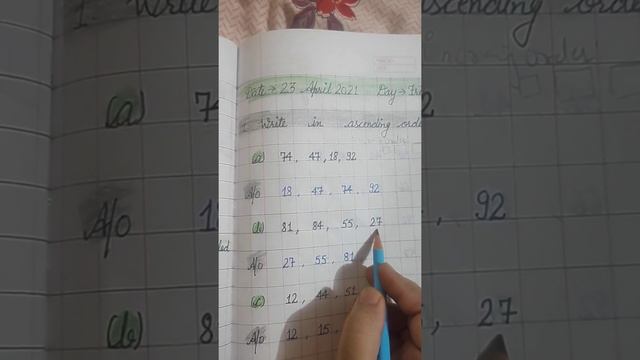 Date → 23 April 2021 Day →
I Write in ascending
(a) 74, 47, 18, 92
A/o 18, 47, 74, 92
(b) 81, 84, 55, 27
A/o 27, 55, 81
(c) 12, 44, 51
A/o 12, 15,